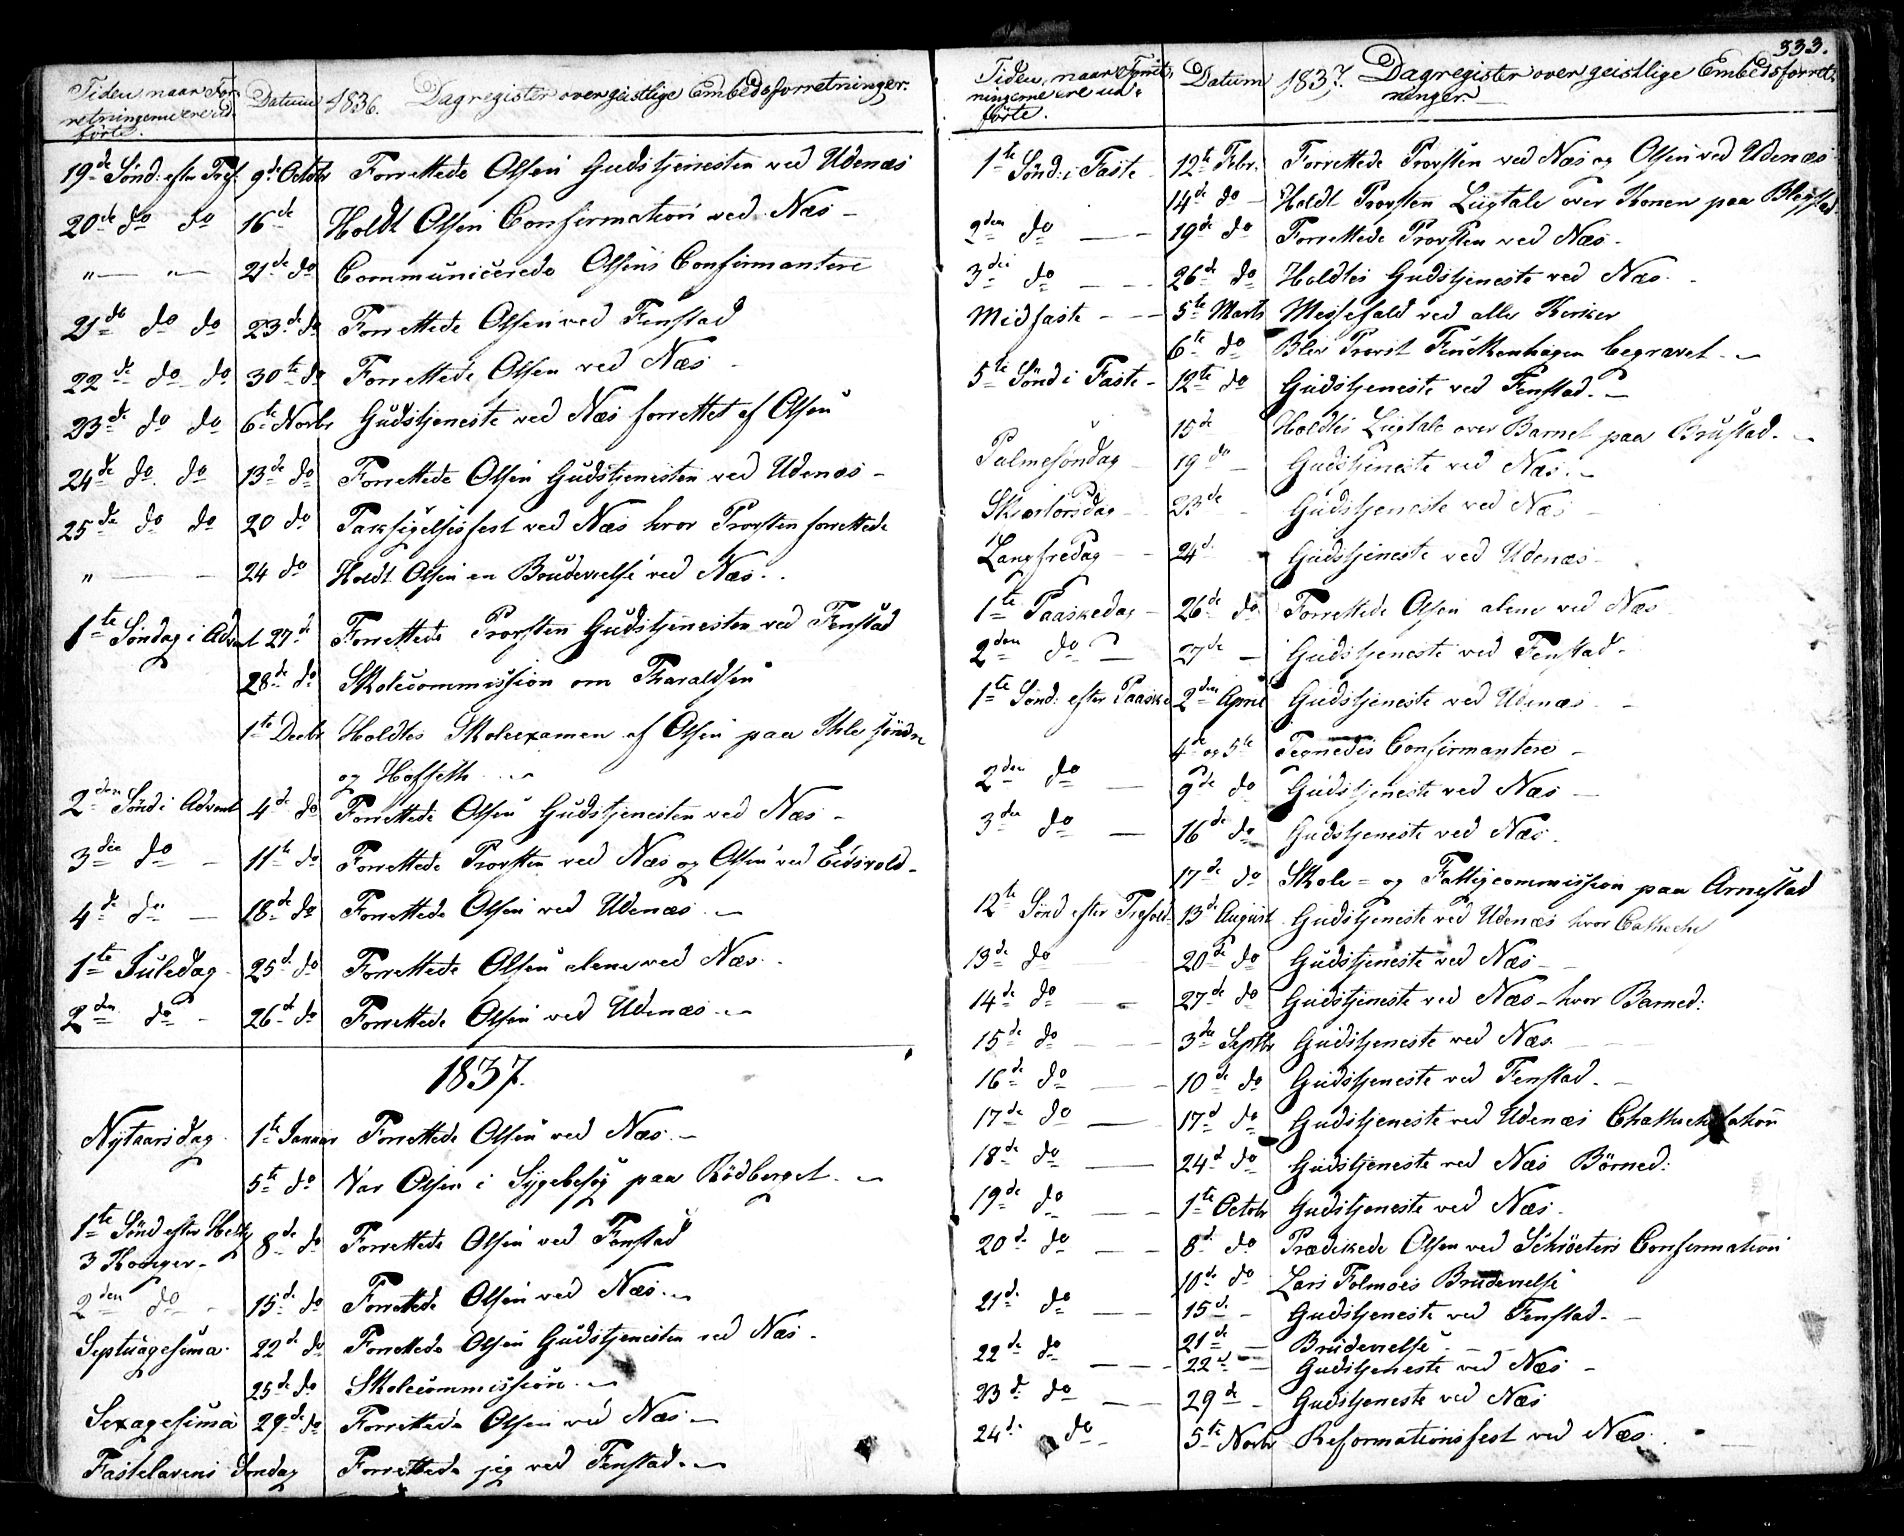 Tiden, naar For-
retningerne ere ud-
førte.
Datum
1836. Dagregister over geistlige Embedsforretninger.
19de Sönd: efter Tref. 9de Octobr Forrettede Olsen Gudstjenesten ved Udenæs
20de do do 16de Holdt Olsen Confirmation ved Næs -
" — " — 21de do Communicerede Olsens Confirmantere
21de do do 23de do Forrettede Olsen ved Fenstad
22de do do 30te do Forrettede Olsen ved Næs
23de do do 6te Novbr Gudstjeneste ved Næs forrettet af Olsen
24de do do 13de do Forrettede Olsen Gudstjenesten ved Udenæs -
25de do do 20 do Taksigelsesfest ved Næs hvor Provsten forrettede
" — 24 do Holdt Olsen en Brudevielse ved Næs.
1te Söndag i Advent 27de Forrettede Provsten Gudstjenesten ved Fenstad
28de do Skolecommission om Tharaldsen
1te Decbr Holdtes Skoleexamen af Olsen paa Ihle söndre
og Hoffseth
2den Sönd i Advent 4de do Forrettede Olsen Gudstjenesten ved Næs -
3die do - 11te do Forrettede Provsten ved Næs og Olsen ved Eidsvold -
4de do - 18de do Forrettede Olsen ved Udenæs -
1te Juledag 25de do Forrettede Olsen alene ved Næs.
2den do - 26de do Forrettede Olsen ved Udenæs -
1837.
Nytaarsdag 1te Januar Forrettede Olsen ved Næs -
5te do Var Olsen i Sygebesög paa Rödberget. -
1te Sönd efter Hellig 8de do Forrettede Olsen ved Fenstad
3 Konger -
2den do - 15de do Forrettede Olsen ved Næs. -
Septuagesima. 22de do Forrettede Olsen Gudstjenesten ved Næs -
25de do Skolecommission. -
Sexagesima 29de do Forrettede Olsen ved Næs -
Fastelavens Söndag Forrettede jeg ved Fenstad. -
333.
Tiden, naar Forret-
ningerne ere ud-
förte.
Datum
1837. Dagregister over geistlige Embedsforret-
ninger.
1te Sönd: i Faste 12te Febr. Forrettede Provsten ved Næs og Olsen ved Udenæs
14de do - Holdt Provsten Liigtale over Konen paa
2den do — 19de do Forrettede Provsten ved Næs -
3die do — 26de do Holdtes Gudstjeneste ved Næs.
Midfaste - - 5te Marts Messefald ved alle Kirker
6te do Blev Provst Finckenhagen begravet. -
5te Sönd i Faste - 12te do Gudstjeneste ved Fenstad. -
15de Holdtes Liigtale over Barnet paa Brustad. -
Palmesöndag 19de - Gudstjeneste ved Næs. -
Skjærtorsdag 23de - Gudstjeneste ved Næs -
Langfredag 24de Gudstjeneste ved Udenæs -
1te Paaskedag - 26de do Forrettede Olsen alene ved Næs
2den do — 27de - Gudstjeneste ved Fenstad -
1te Sönd: efter Paaske 2den April Gudstjeneste ved Udenæs -
4de og 5te Tegnedes Confirmantere -
2den do — 9de do Gudstjeneste ved Næs -
3die do — 16de do Gudstjeneste ved Næs.
17de do Skole- og Fattigcommission paa Arnestad
12te Sönd efter Trefold. 13de August Gudstjeneste ved Udenæs hvor
13de do 20de do Gudstjeneste ved Næs -
14de do - 27de do Gudstjeneste ved Næs - hvor Barned:
15de do — 3die Septbr Gudstjeneste ved Næs.
16de do — 10de do Gudstjeneste ved Fenstad. -
17de do — 17de do Gudstjeneste ved Udenæs
18de do — 24de do Gudstjeneste ved Næs Börned:
19de do — 1te Octobr Gudstjeneste ved Næs.
20de do — 8de do Prædikede Olsen ved Schröeters Confirmation
10de do Lars Folmoes Brudevielse
21de do — 15de - Gudstjeneste ved Fenstad. -
21de - Brudevielse -
22de do — 22de - Gudstjeneste ved Næs -
23de do — 29de - Gudstjeneste ved Næs
24de do - 5te Novbr Reformationsfest ved Næs.